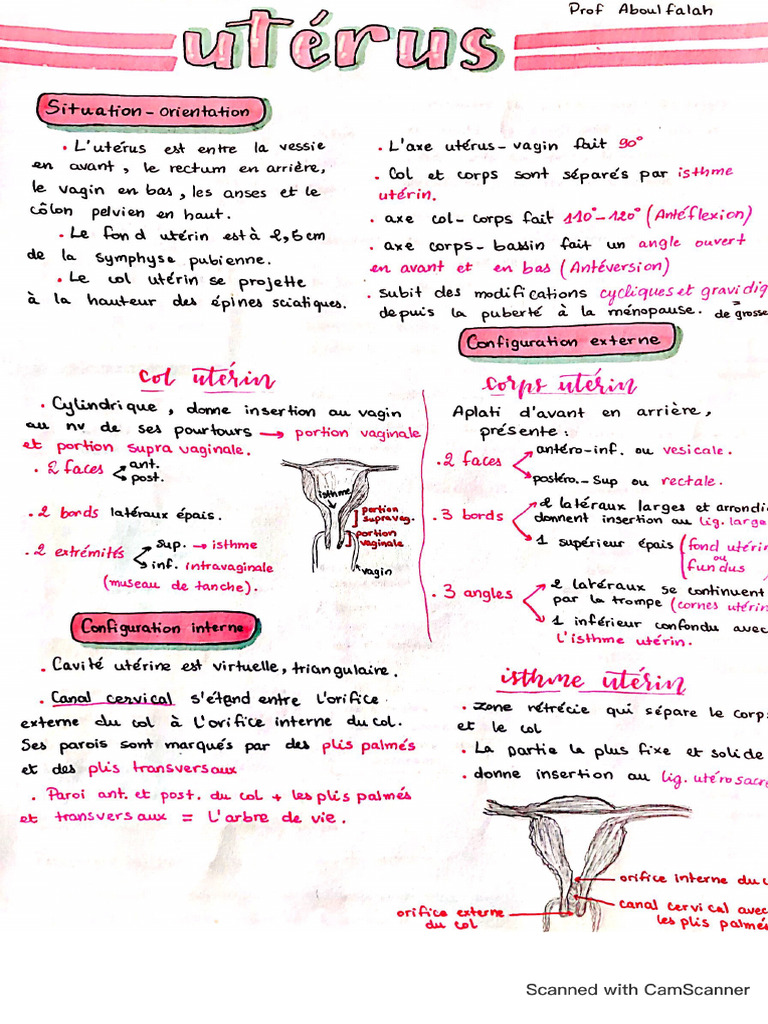 Prof Aboulfalah
utérus
Situation - orientation
. L'utérus est entre la vessie
en avant, le rectum en arrière,
le vagin en bas, les anses et le
côlon pelvien en haut.
. Le fond utérin est à 2,5 cm
de la symphyse pubienne.
. Le col utérin se projette
à la hauteur des épines sciatiques.
. L'axe utérus-vagin fait 90°
. Col et corps sont séparés par isthme
utérin.
. axe col-corps fait 110°-120° (Antéflexion)
. axe corps-bassin fait un angle ouvert
en avant et en bas (Antéversion)
. subit des modifications cycliques et gravidiq
depuis la puberté à la ménopause. de grosse
Configuration externe
col utérin
. Cylindrique, donne insertion au vagin
au nv de ses pourtours → portion vaginale
et portion supra vaginale.
. 2 faces ant.
post.
. 2 bords latéraux épais.
. 2 extrémités sup. → isthme
inf. intravaginale
(museau de tanche).
isthme
portion
supravag.
portion
vaginale
vagin
corps utérin
Aplati d'avant en arrière,
présente :
. 2 faces antéro-inf. ou vesicale.
postéro.-Sup ou rectale.
. 3 bords 2 latéraux larges et arrondi
donnent insertion au lig. large
1 supérieur épais (fond utérin
ou
fundus
. 3 angles 2 latéraux se continuent
par la trompe (cornes utérin
1 inférieur confondu avec
l'isthme utérin.
Configuration interne
. Cavité utérine est virtuelle, triangulaire.
. Canal cervical s'étend entre l'orifice
externe du col à l'orifice interne du col.
Ses parois sont marqués par des plis palmés
et des plis transversaux
. Paroi ant. et post. du col + les plis palmés
et transversaux = L'arbre de vie.
isthme utérin
. zone rétrécie qui sépare le corp
et le col
. La partie la plus fixe et solide
. donne insertion au lig. utérosacr
orifice interne du c
canal cervical avec
les plis palmés
orifice externe
du col
Scanned with CamScanner